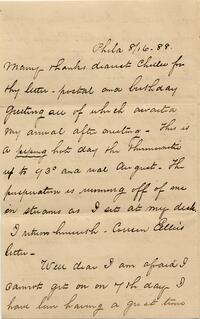 Phila 8/16-88.
Many thanks dearest Charles for
thy letter - postal and birthday
greeting all of which awaited
my arrival after meeting - This
is a hot day the Thermometer
up to 93° and real August - The
perspiration is running off of me
in streams as I sit at my desk
I return herewith Ellis
letter -
Well dear I am afraid I
cannot get on on 7th day I
have been having a great time